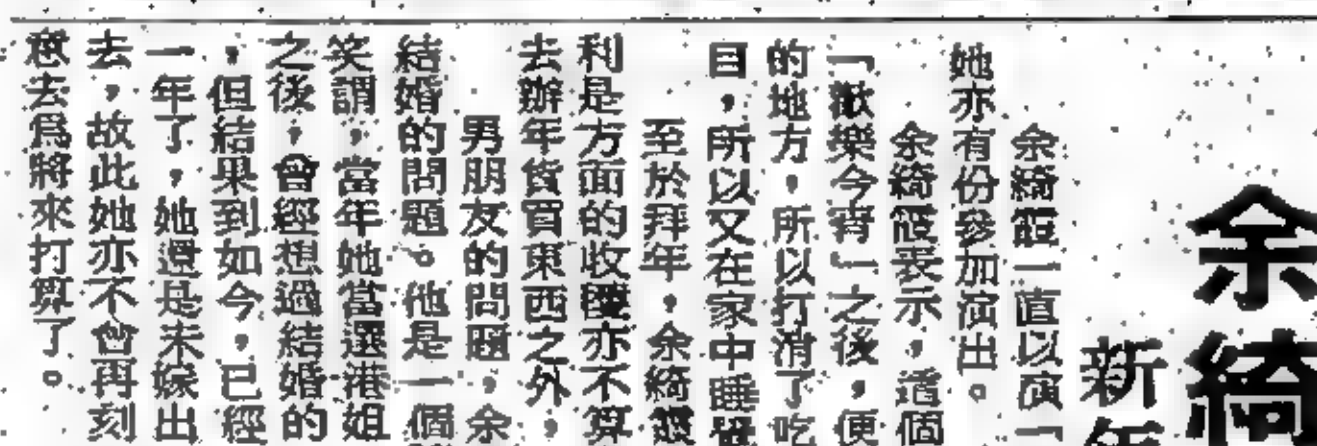 余綺
新年
余綺霞一直以演「
她亦有份參加演出。
余綺霞表示，這個
「歡樂今宵」之後，便
的地方，所以打消了吃
目，所以又在家中睡覺
至於拜年，余綺霞
利是方面的收穫亦不算
去辦年貨買東西之外，
男朋友的問題，余
結婚的問題。他是一個
笑謂，當年她當選港姐
之後，曾經想過結婚的
，但結果到如今，已經
一年了，她還是未嫁出
去，故此她亦不會再刻
意去爲將來打算了。